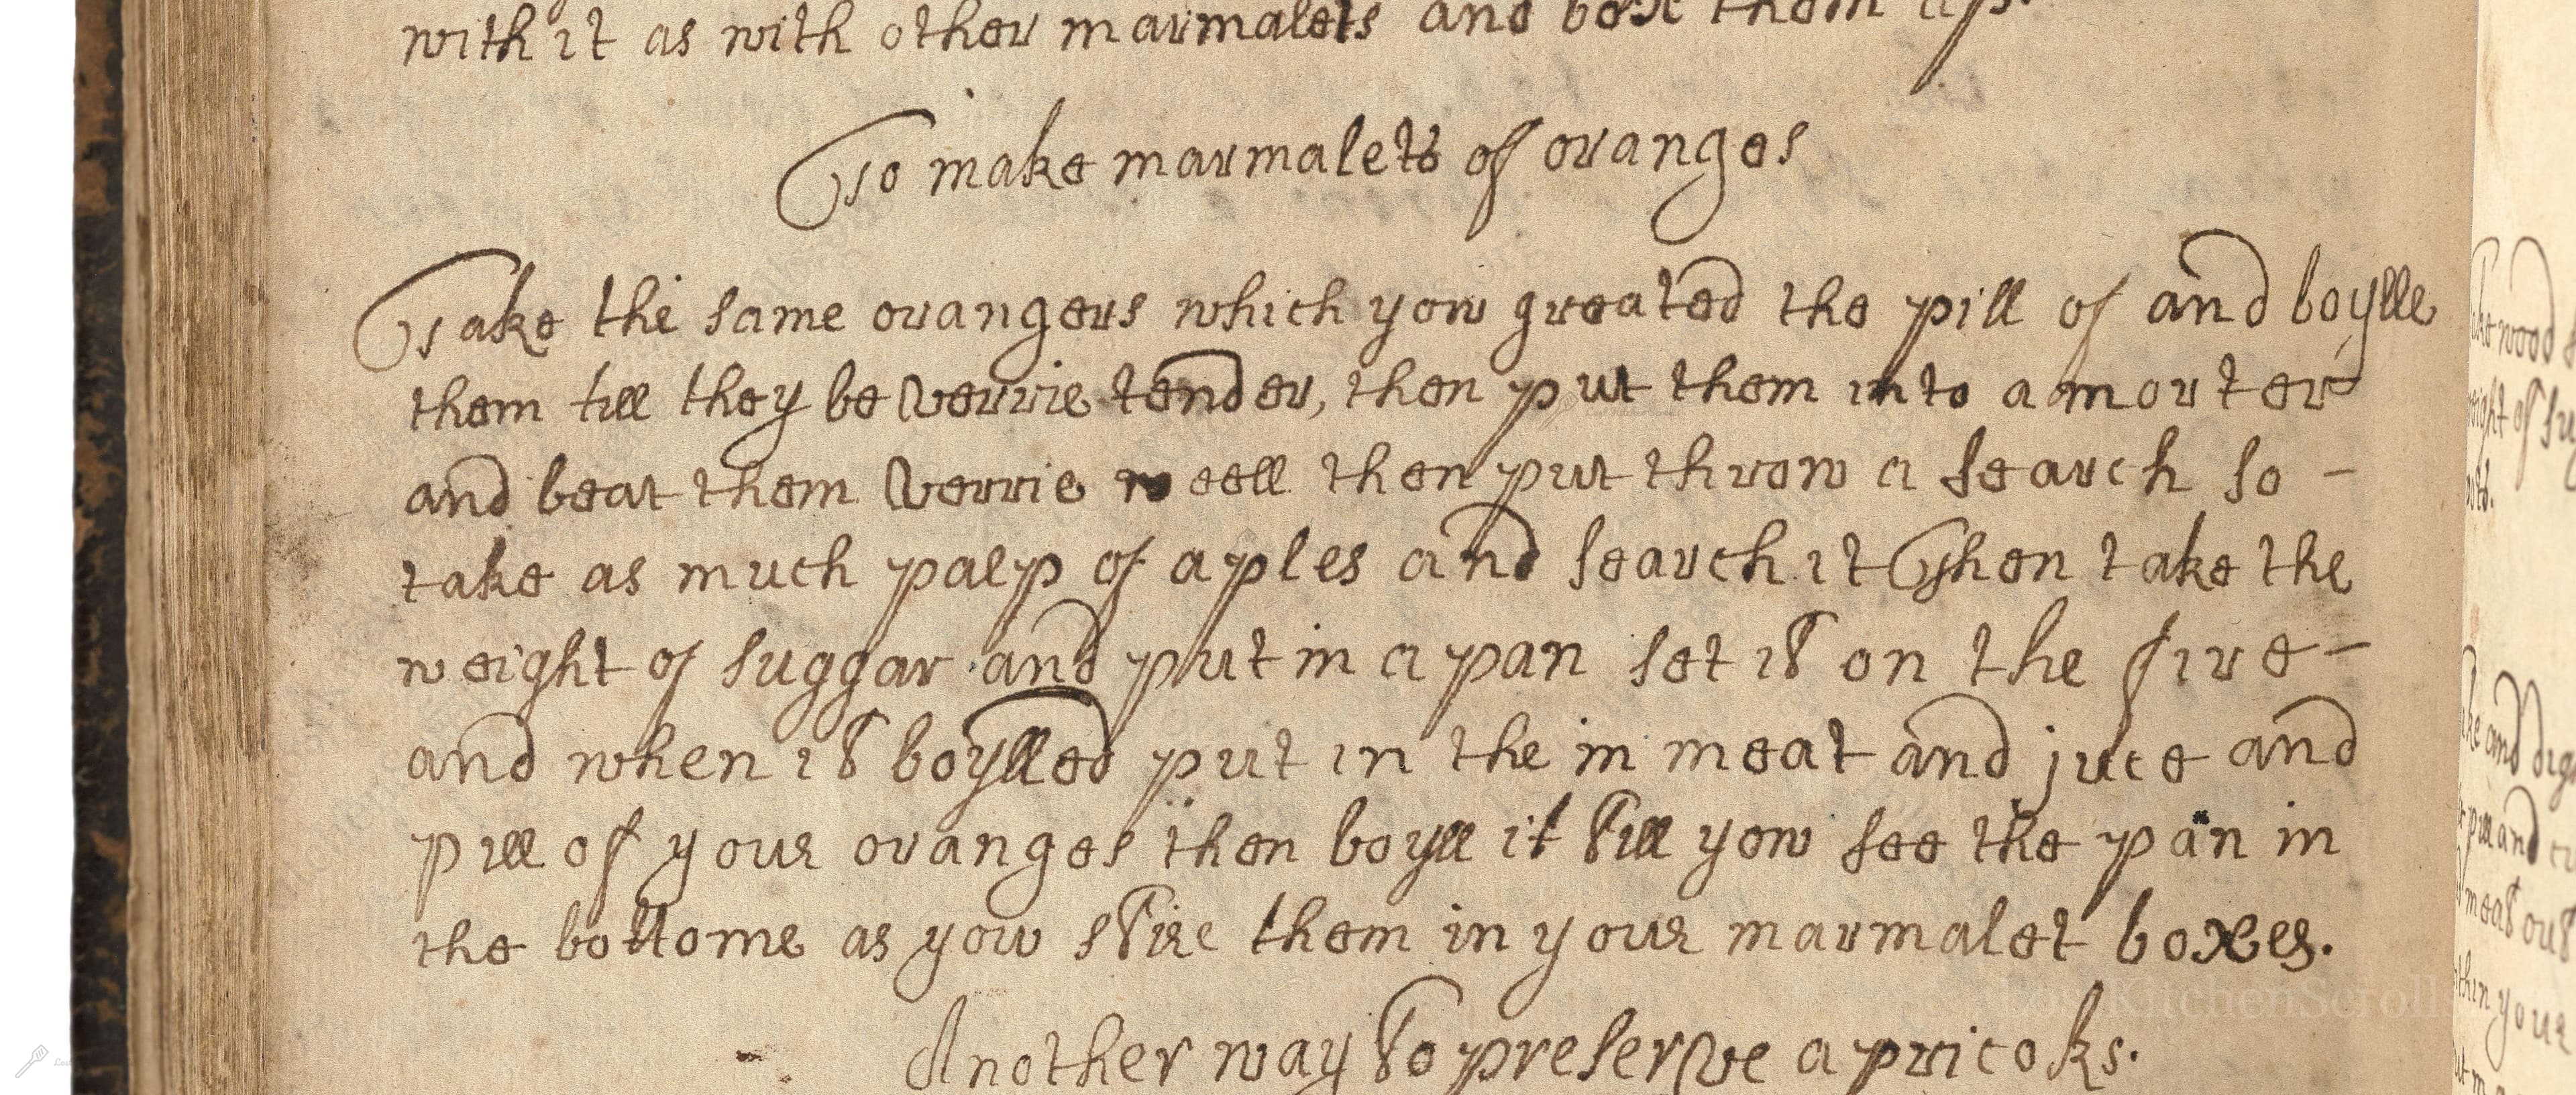 with it as with other marmalets and boxe them up.
To make marmalets of oranges
Take the same orangers which yow greated the pill of and boylle
them till they be verrie tender, then put them into a morter
and beat them verrie weell then put throw a search so -
take as much palp of aples and search it Then take the
weight of suggar and put in a pan set it on the fire -
and when it boylled put in the in meat and juce and
pill of your oranges then boyll it till yow see the pan in
the bottome as yow stire them in your marmalet boxes.
Another way to preserve apricoks.
KitchenScroll